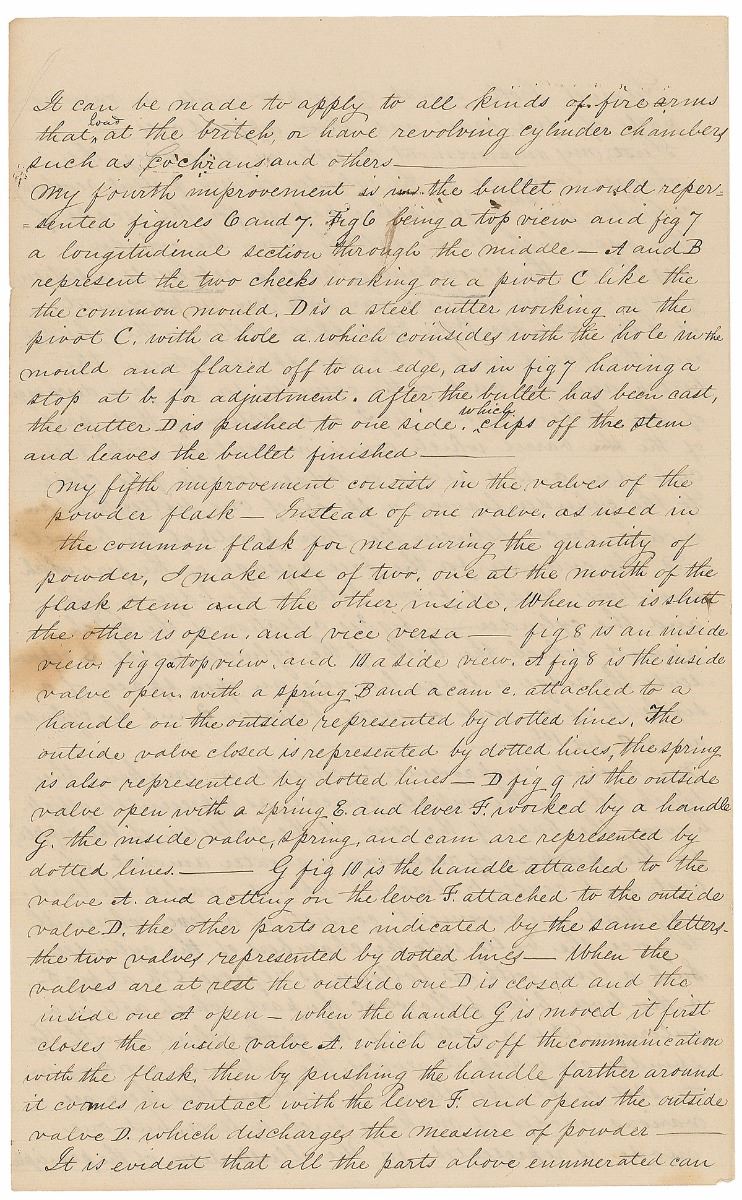 It can be made to apply to all kinds of fire arms
that load at the britch, or have revolving cylinder chambers
such as Cochrans and others —
My fourth improvement is in the bullet mould reper-
-sented figures 6 and 7. Fig 6 being a top view and fig 7
a longitudinal section through the middle — A and B
represent the two cheeks working on a pivot C like the
the common mould. D is a steel cutter working on the
pivot C. with a hole a. which coinsides with the hole in the
mould and flared off to an edge, as in fig 7 having a
stop at b. for adjustment. After the bullet has been cast,
the cutter D is pushed to one side. which clips off the stem
and leaves the bullet finished —
My fifth improvement consists in the valves of the
powder flask — Instead of one valve. as used in
the common flask for measuring the quantity of
powder, I make use of two, one at the mouth of the
flask stem and the other inside. When one is shutt
the other is open. and vice versa — fig 8 is an inside
view. fig 9 a top view. and 10 a side view. A fig 8 is the inside
valve open. with a spring B and a cam c. attached to a
handle on the outside represented by dotted lines. The
outside valve closed is represented by dotted lines, the spring
is also represented by dotted lines — D fig 9 is the outside
valve open with a spring E. and lever F. worked by a handle
G. the inside valve, spring, and cam are represented by
dotted lines. — G fig 10 is the handle attached to the
valve A. and acting on the lever F. attached to the outside
valve D. the other parts are indicated by the same letters-
the two valves represented by dotted lines — When the
valves are at rest the outside one D is closed and the
inside one A open — when the handle G is moved it first
closes the inside valve A. which cuts off the communication
with the flask, then by pushing the handle farther around
it coomes in contact with the lever F. and opens the outside
valve D. which discharges the measure of powder —
It is evident that all the parts above enumerated can